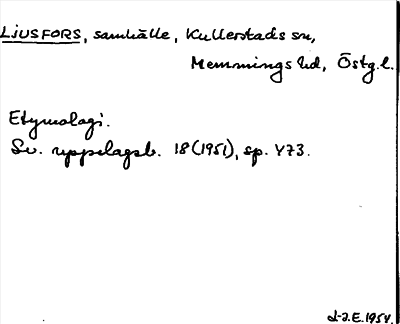 LJUSFORS, samhälle, Kullerstads sn,
Memmings hd, Östg.l.
Etymologi.
Sv. uppslagsb. 18 (1951), sp. 473.
1954.